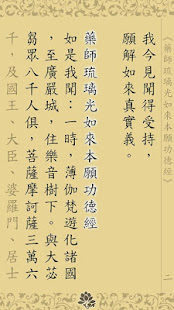 《藥師琉璃光如來本願功德經》
二
我今見聞得受持，
願解如來真實義。
藥師琉璃光如來本願功德經
如是我聞：一時，薄伽梵遊化諸國
，至廣嚴城，住樂音樹下。與大苾
芻眾八千人俱，菩薩摩訶薩三萬六
千，及國王、大臣、婆羅門、居士